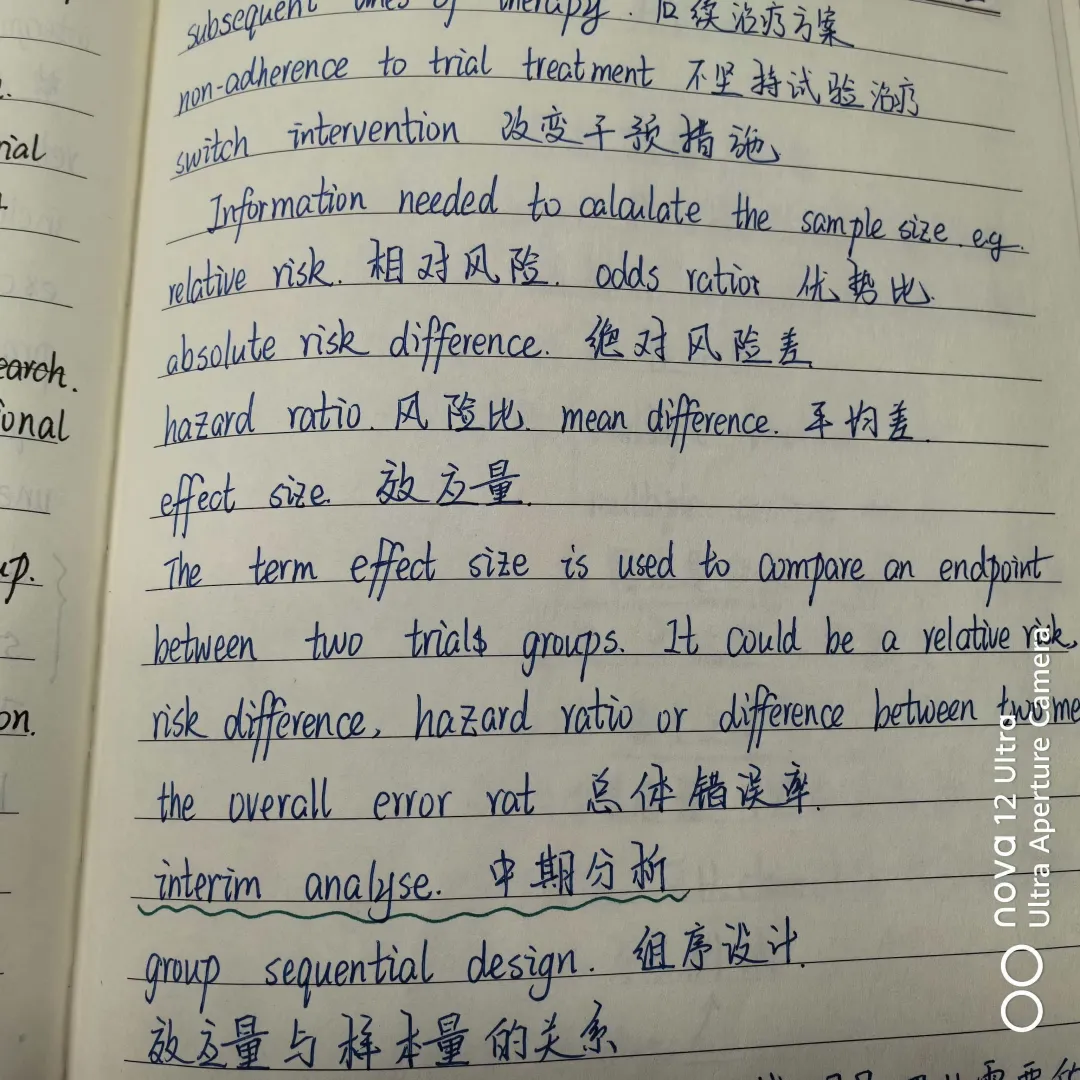 subsequent lines of therapy. 后续治疗方案
non-adherence to trial treatment 不坚持试验治疗
switch intervention 改变干预措施
Information needed to calculate the sample size e.g.
relative risk. 相对风险. odds ratior 优势比.
absolute risk difference. 绝对风险差
hazard ratio. 风险比. mean difference. 平均差.
effect size. 效应量.
The term effect size is used to compare an endpoint
between two trials groups. It could be a relative risk,
risk difference, hazard ratio or difference between two me
the overall error rat 总体错误率.
interim analyse. 中期分析
group sequential design. 组序设计.
效应量与样本量的关系
rial
earch.
ional
up.
on.
nova 12 Ultra
Ultra Aperture Camera